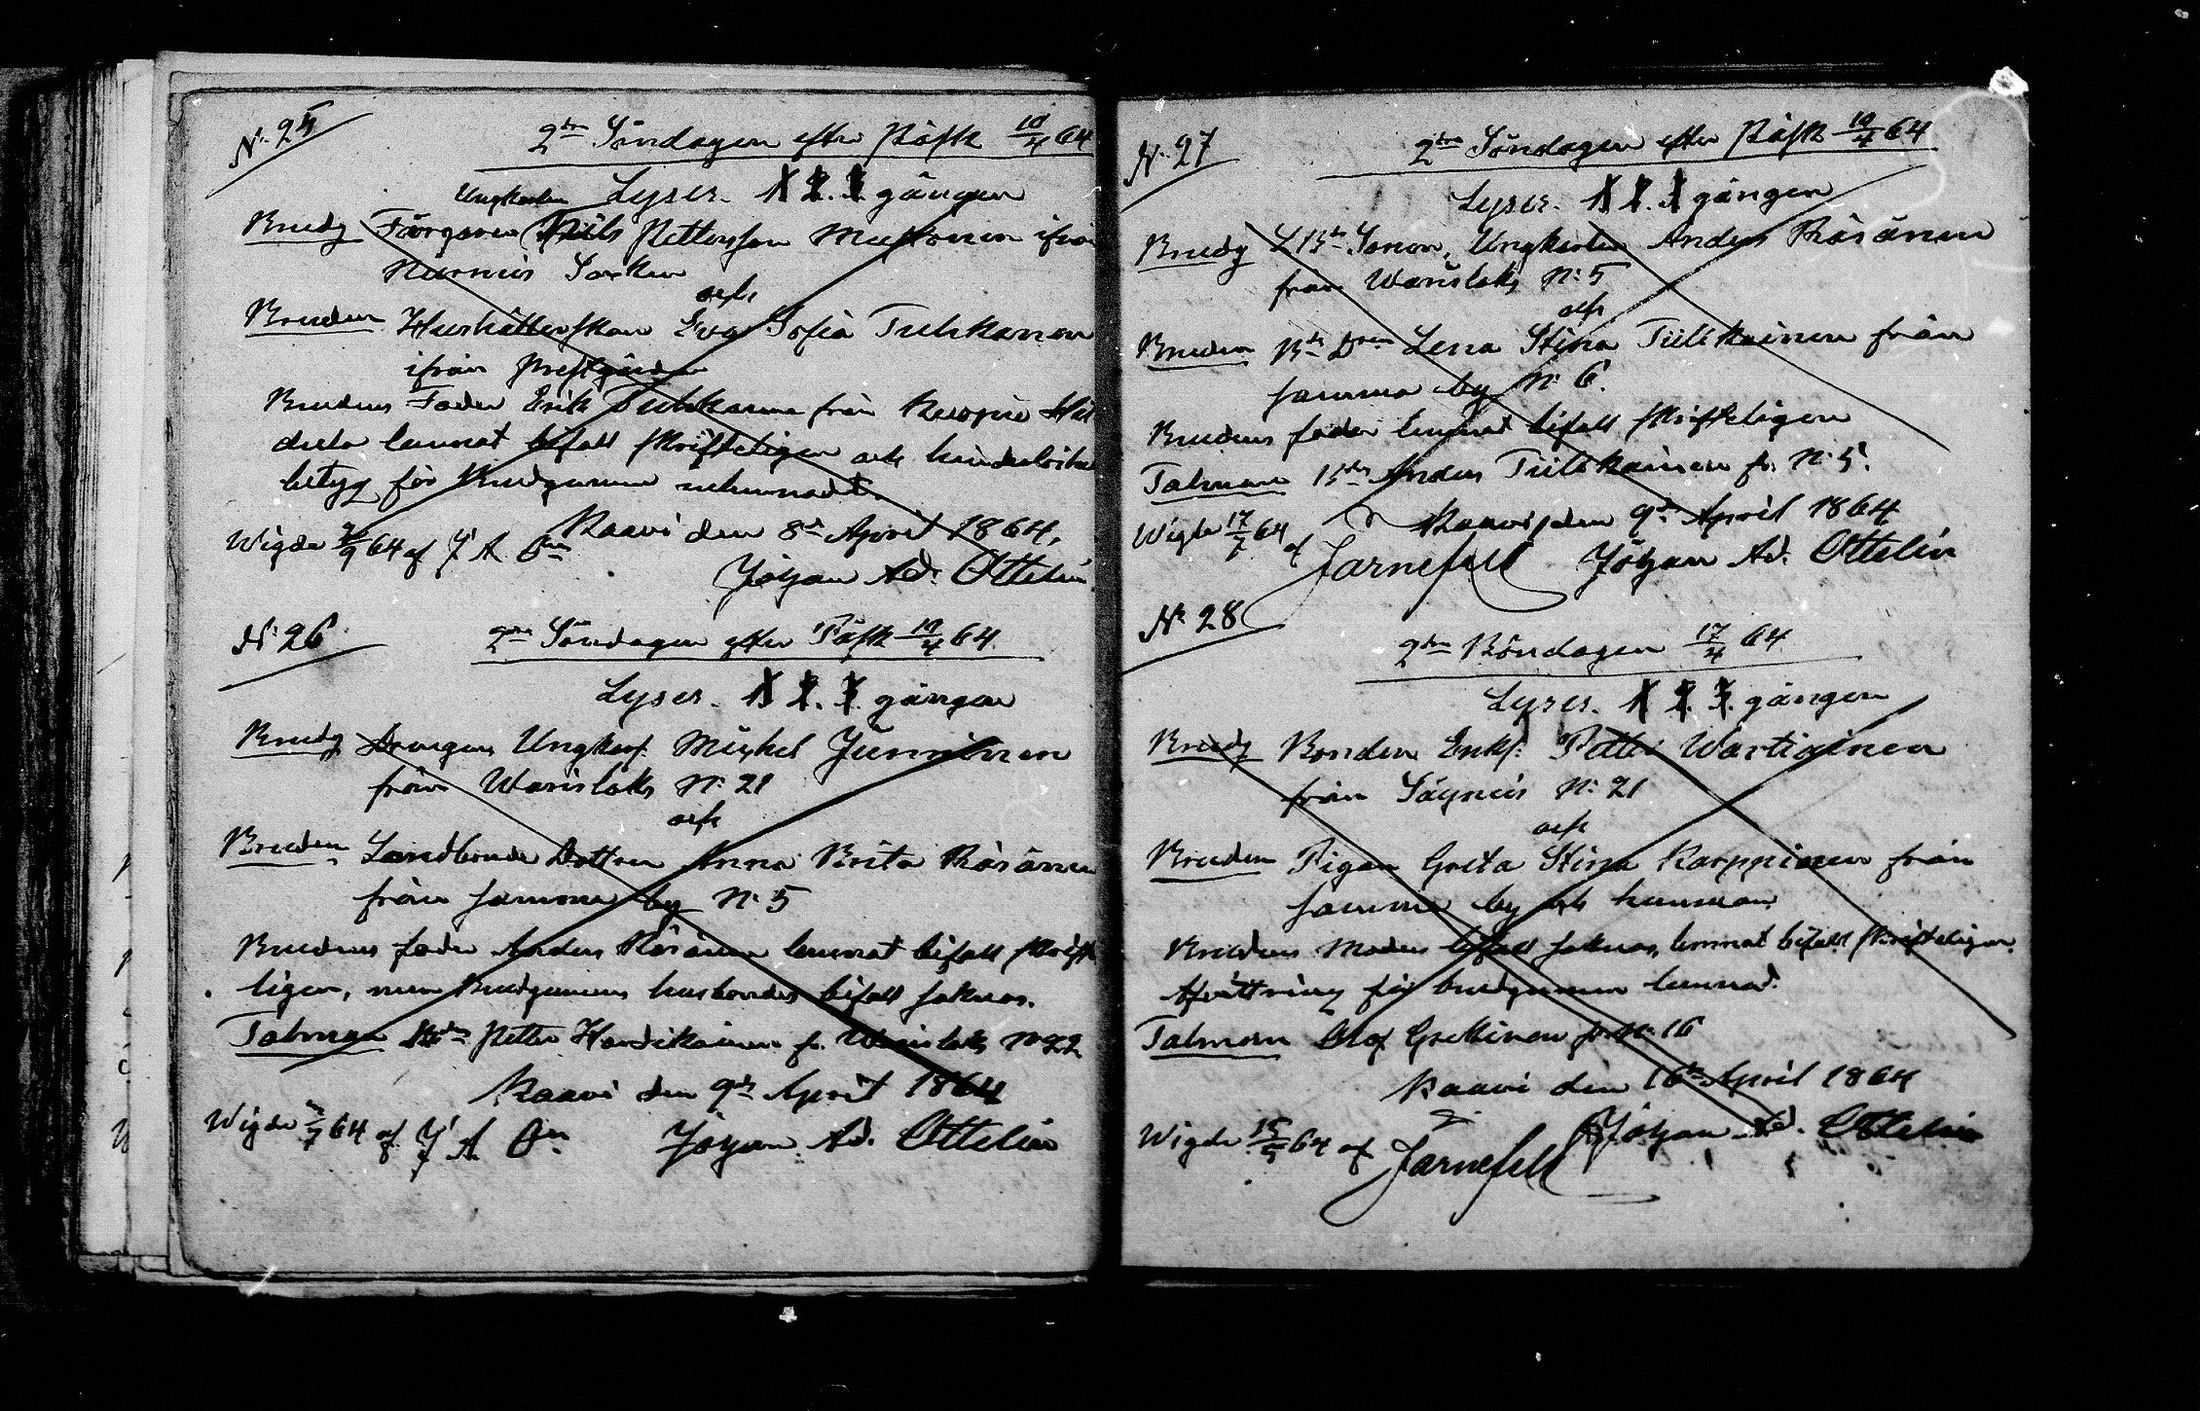 N: 25
2dra Söndagen efter Påsk 10/4 64
Ungkarlen Lyses. 1. 2. 3. gången
Brudg Färgaren Nils Pettersson Mustonen ifrån
Nurmis Socken
och
Bruden Hushållerskan Eva Sofia Tuhkanen
ifrån Prestgården
Brudens Fader Erik Tuhkanen från Kuopio
lemnat bifall skrifteligen och hinderlöshets
betyg för Brudgummen
Kaavi den 8de April 1864.
Wigde 64 af J A On
Johan Ad. Ottelin
N: 26
2dra Söndagen efter Påsk 10/4 64
Lyses. 1. 2. 3. gången
Brudg Drengen Ungkarl Michel Junnonen
från Warislaks N: 21
och
Bruden Landbonde Dottren Anna Brita Räsänen
från samma by N: 5
Brudens fader Anders Räsänen lemnat bifall skrift
ligen, men Brudgummens husbondes bifall saknas.
Talman Petter Hendikainen fr. Warislaks N 22
Kaavi den 9de April 1864
Wigde 64 af J A On Johan Ad. Ottelin
N: 27
2dra Söndagen efter Påsk 10/4 64
Lyses. 1. 2. 3. gången
Brudg Sonen, Ungkarlen Anders Räsänen
från Warislaks N: 5
och
Bruden Bde Dren Lena Stina Tiilikainen från
samma by N: 6.
Brudens fader lemnat bifall skrifteligen
Talman Bden Anders Tiilikainen fr. N: 5.
Kaavi den 9de April 1864
Wigde 17/7 64 af Järnefelt Johan Ad. Ottelin
N: 28
2dra Böndagen 17/4 64
Lyses. 1. 2. 3. gången
Brudg Bonden Enkl. Petter Wartiainen
från Säyneis N: 21
och
Bruden Pigan Greta Stina Karppinen från
samma by och hemman
Brudens Moders bifall saknas, lemnat bifall skrifteligen.
Afvittring för brudgummen lemnad.
Talman Olof Gretkinen fr. N: 16
Kaavi den 16de April 1864
Wigde 15/5 64 af Järnefelt Johan Ad. Ottelin